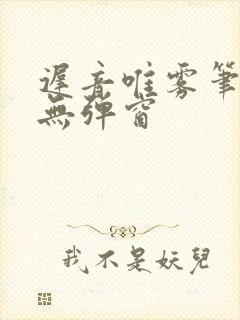 遲音唯雾筆
無弹窗
我不是妖兒